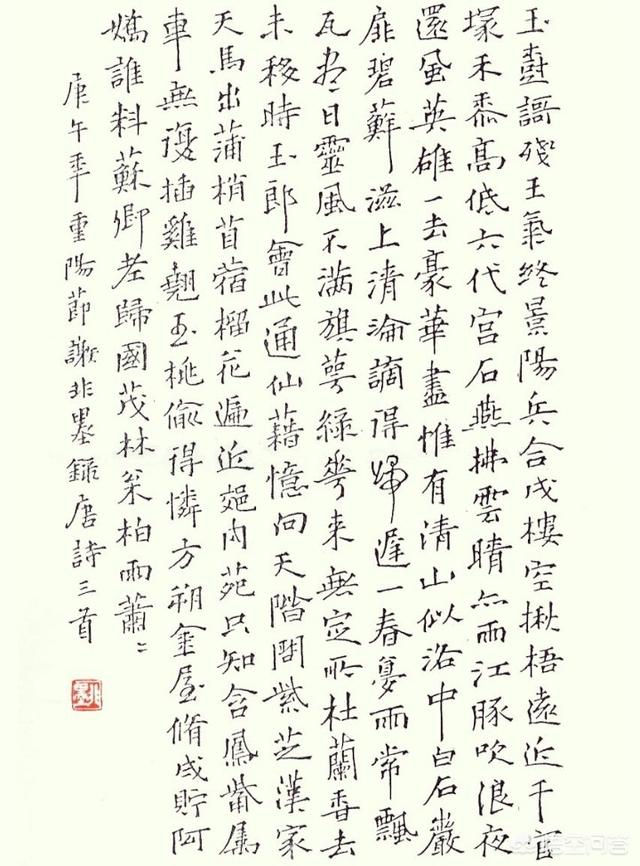 玉樹謌殘王氣終景陽兵合戍樓空楸梧遠近千官
塚禾黍高低六代宮石燕拂雲晴亦雨江豚吹浪夜
還風英雄一去豪華盡惟有清山似洛中白石巖
扉碧蘚滋上清淪謫得歸遲一春夢雨常飄
瓦盡日靈風不滿旗萼綠華来無定所杜蘭香去
未移時玉郎會此通仙藉憶向天階問紫芝漢家
天馬出蒲梢苜蓿榴花遍近郊内苑只知含鳳觜属
車無復插雞翹玉桃偷得憐方朔金屋脩成貯阿
嬌誰料蘇卿老歸國茂林枀柏雨蕭〻
庚午年重陽節謝非墨録唐詩三首
非墨
悟空问答